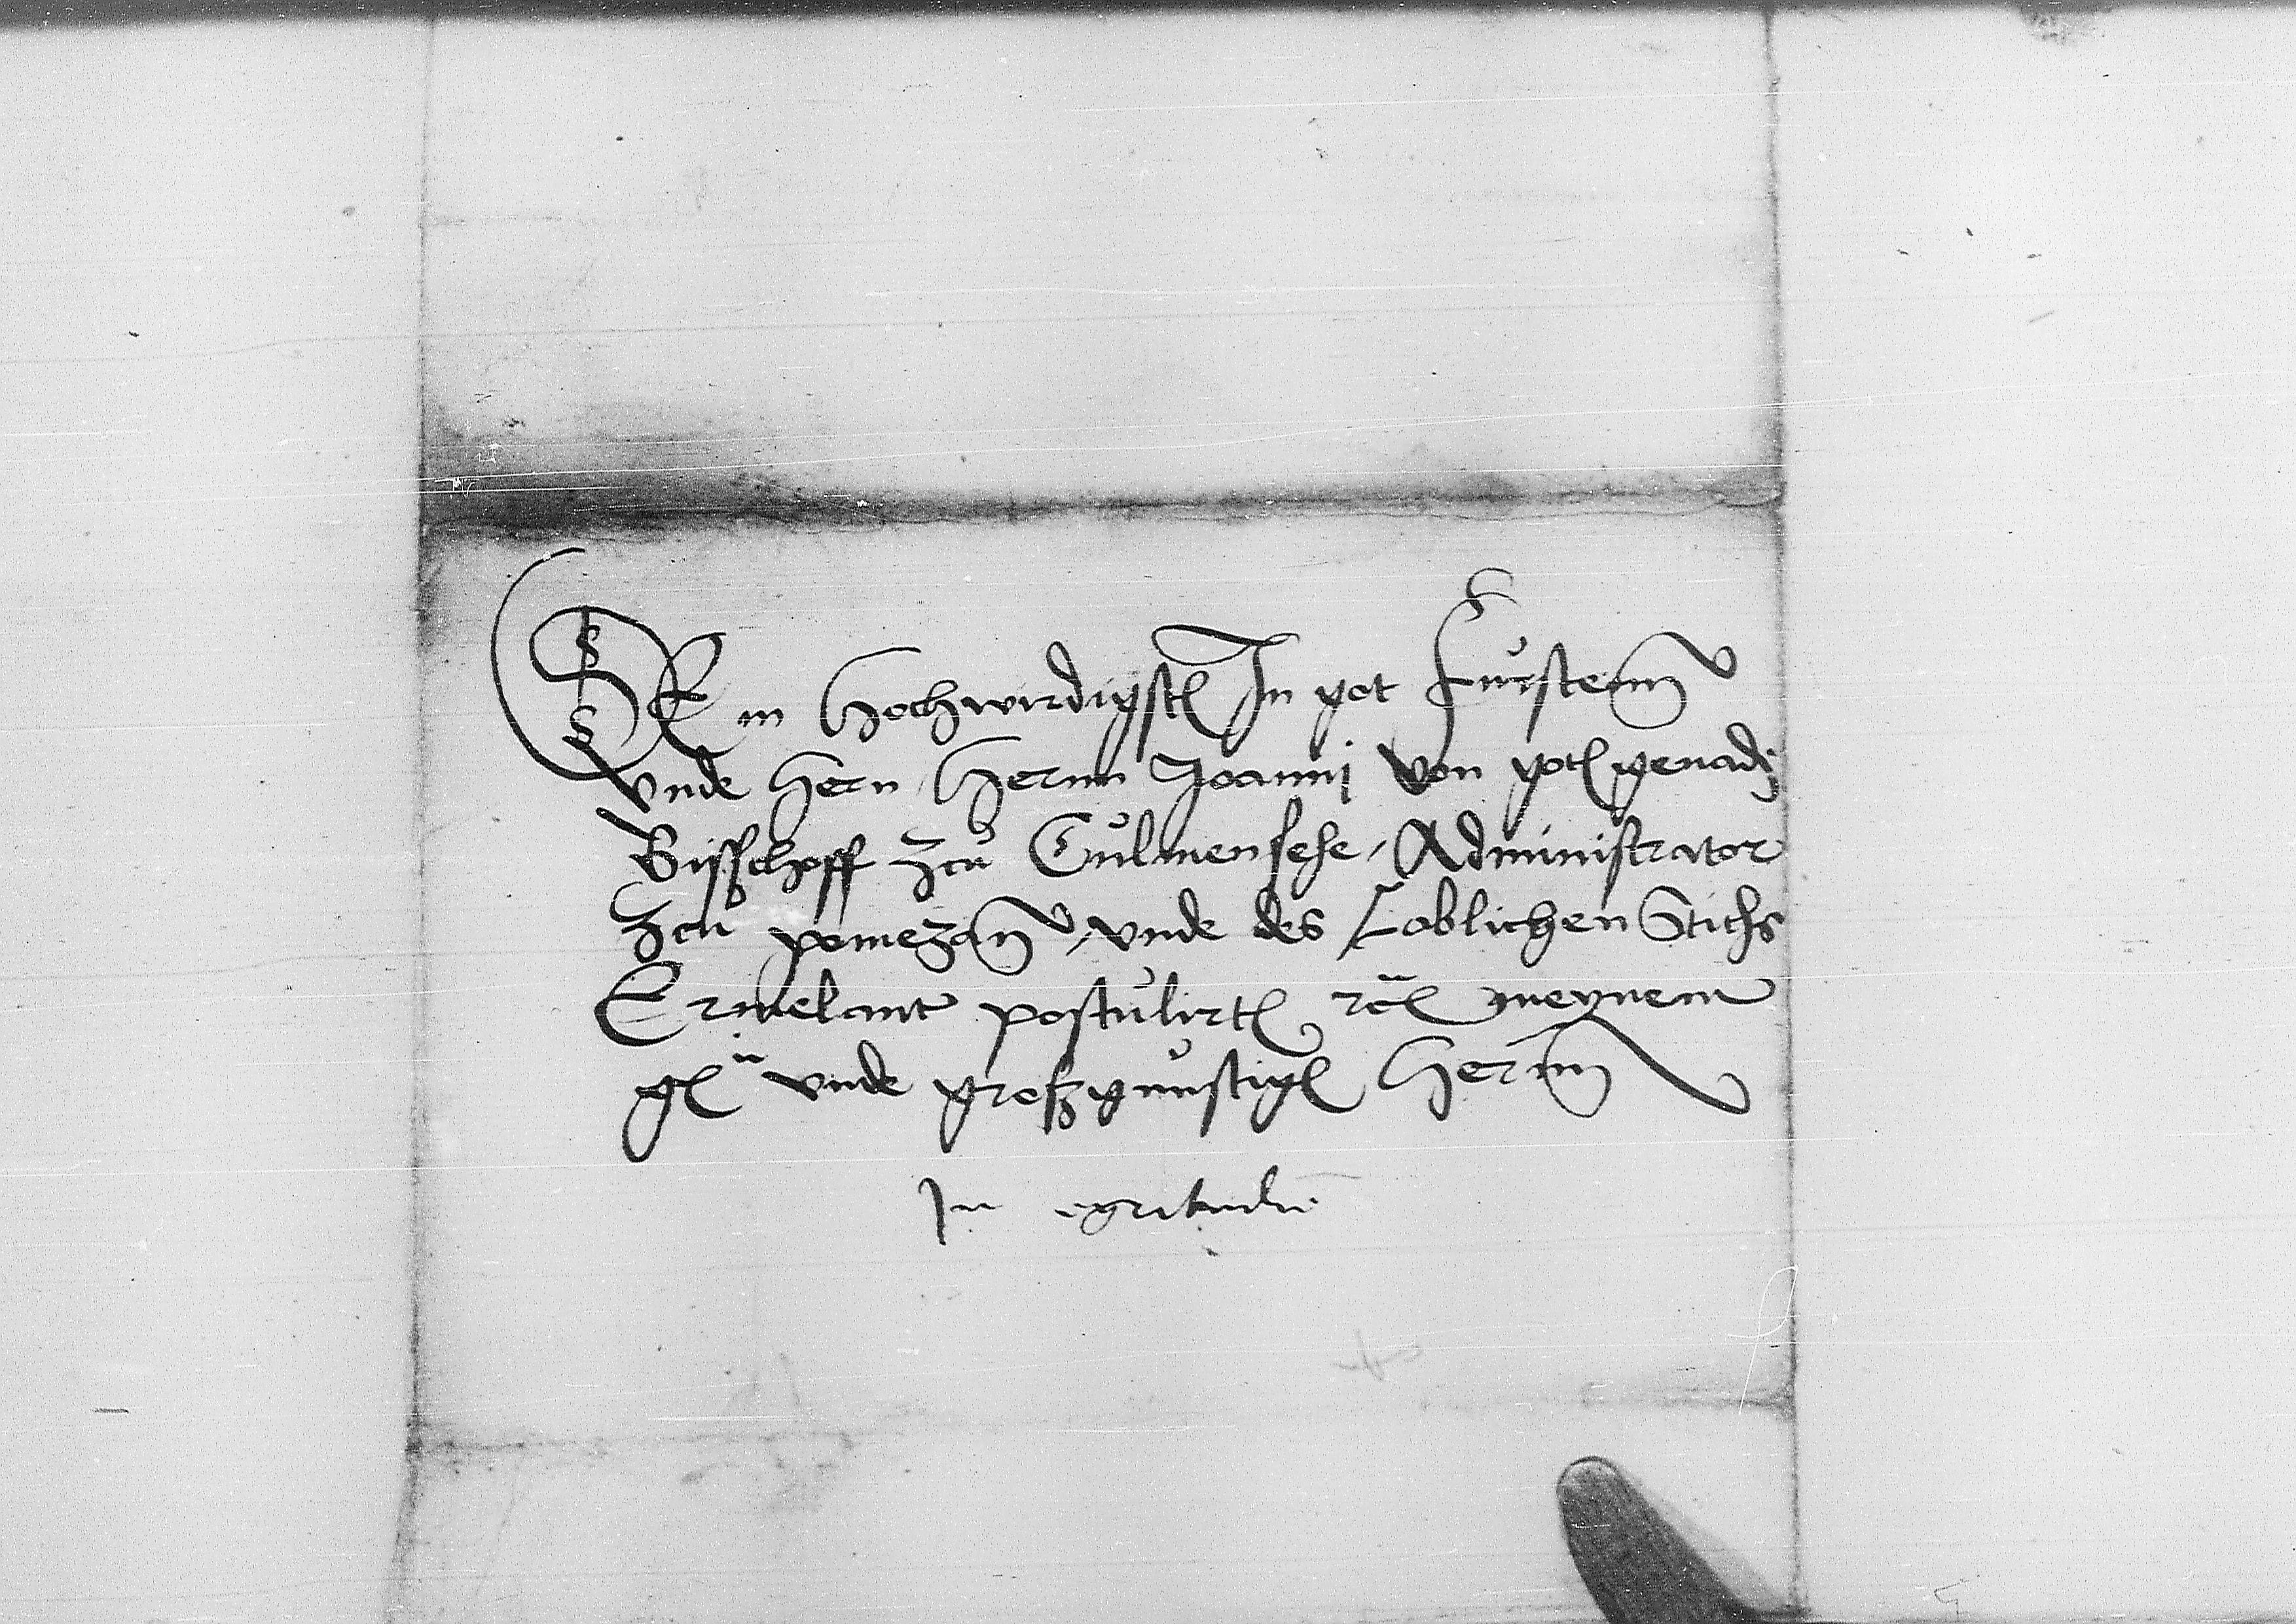 DEm Hochwirdigsten In got Furstenn
vnde Hern Hernn Joanni von gots genade
Bisschoff zcu Culmensehe, Administrator
Zcu pomezan, vnde des Loblichen Stichs
Ermelant postulirten rc̃ meynem
gn vnde groszgunstigen Hernn
In egritudie